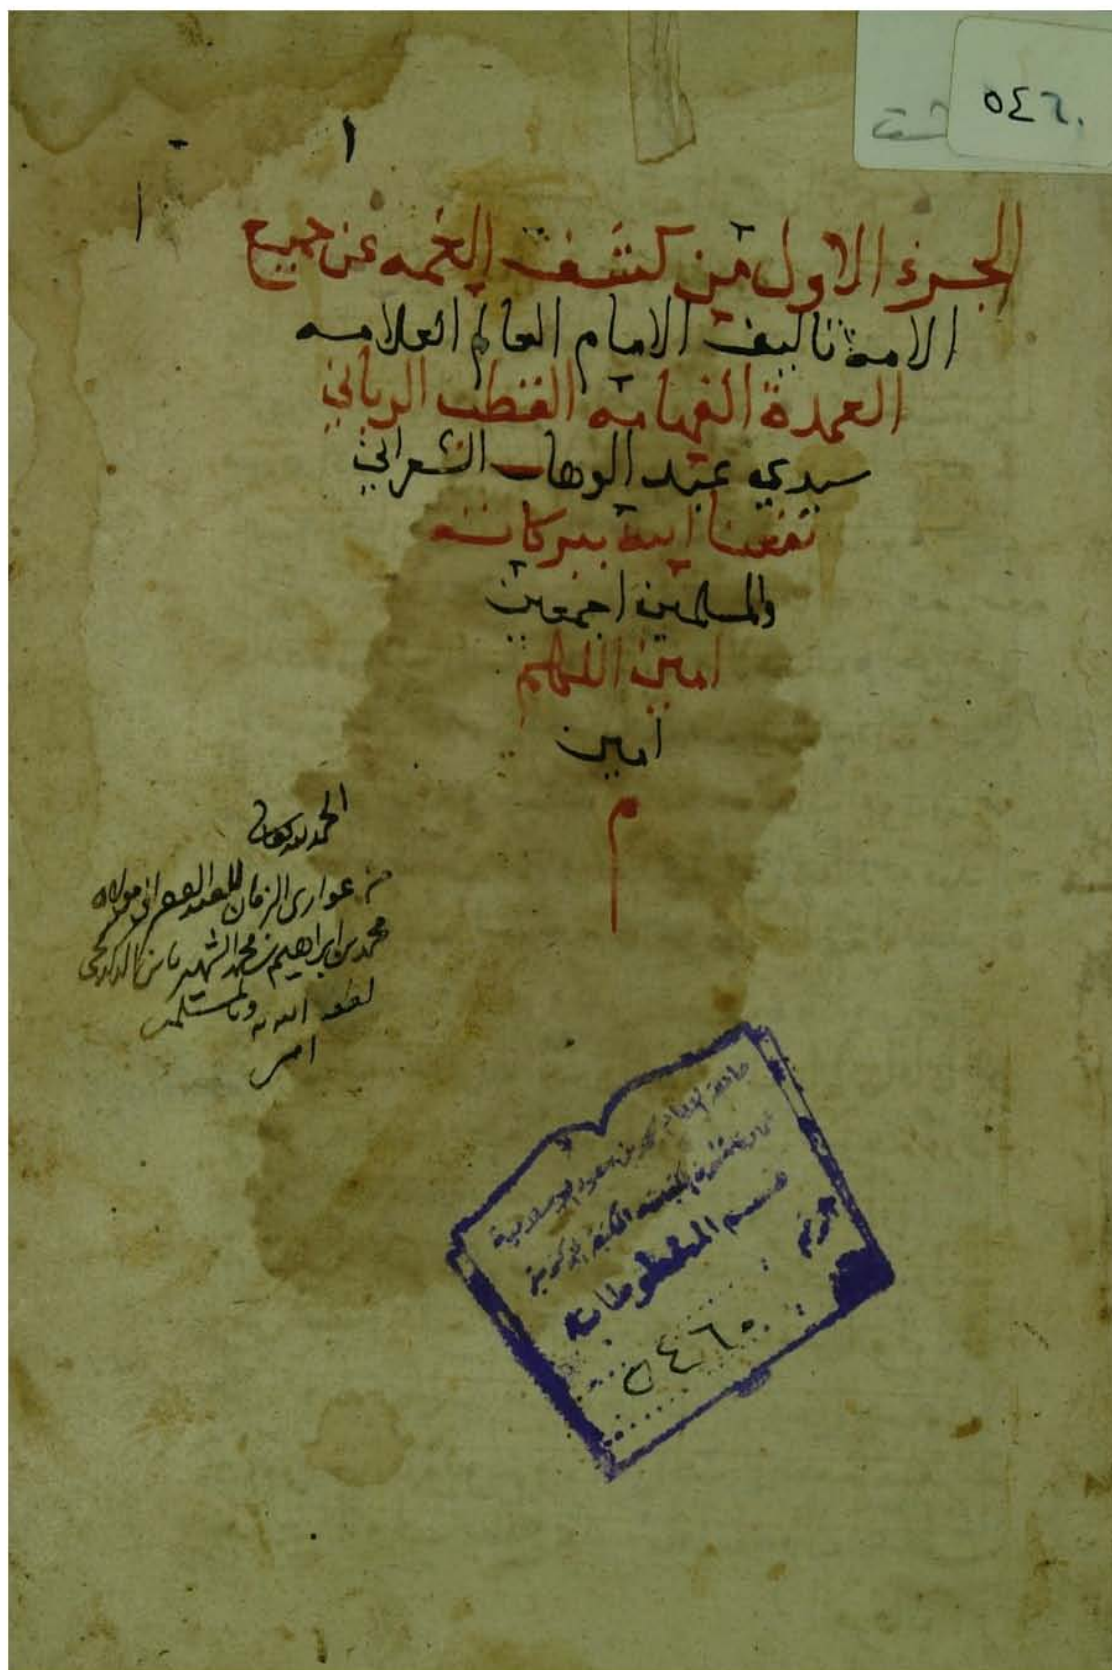 ٥٤٦٠
١
الجزء الاول من كشف الغمه عن جميع
الامة تاليف الامام العالم العلامه
العمدة الفهامه القطب الرباني
سيدي عبد الوهاب الشعراني
نفعنا الله ببركاته
والمسلمين اجمعين
امين اللهم
امين
م
الحمد لله
من عوارى الزمان للعبد الفقير الى مولاه
محمد بن ابراهيم بن محمد الشهير بابن
لطف الله به وبالمسلمين
امين
جامعة الإمام محمد بن سعود الإسلامية
المكتبة المركزية
قسم المخطوطات
الرقم
٥٤٦٠